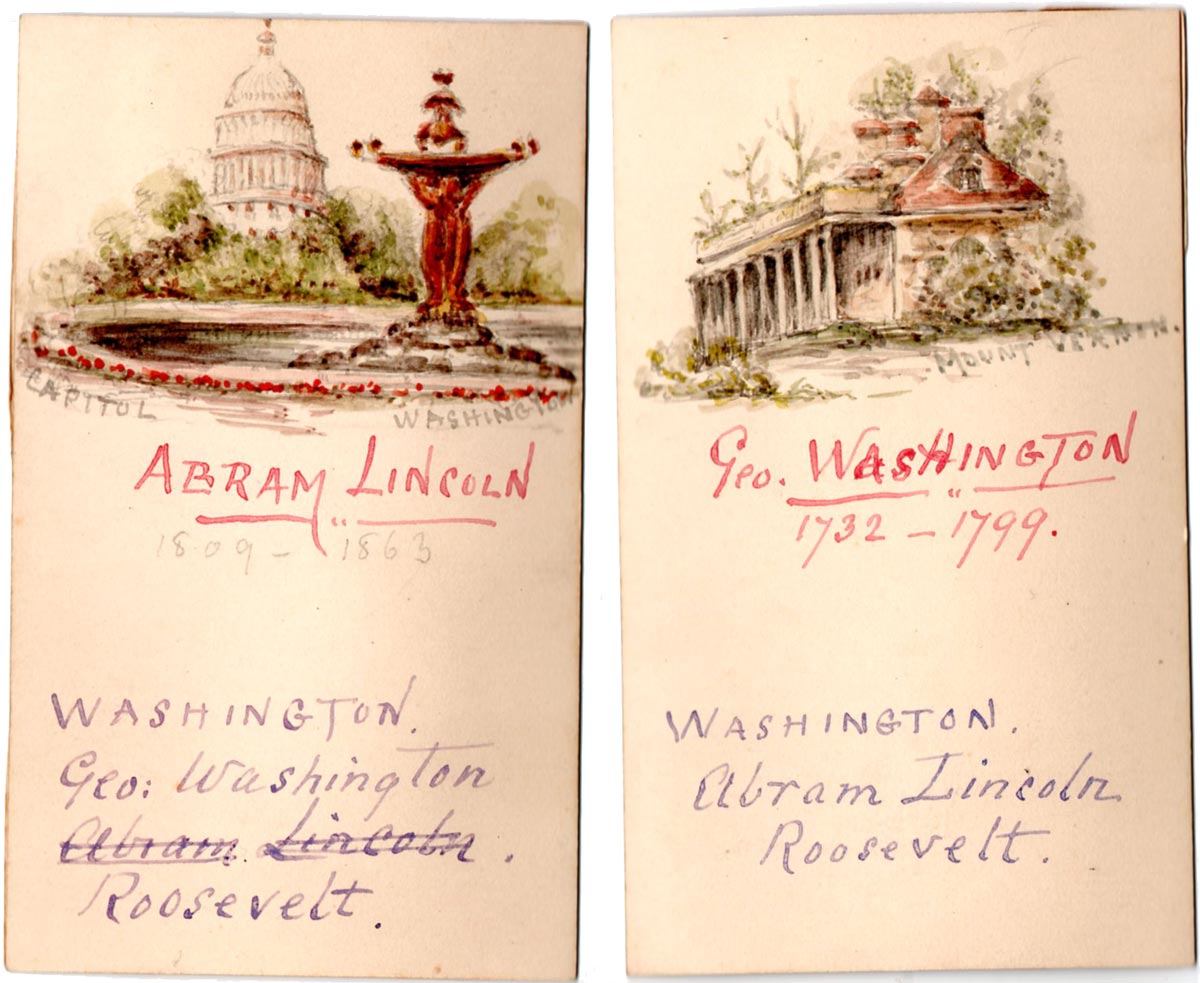 CAPITOL
WASHINGTON
ABRAM LINCOLN
1809 – 1863
WASHINGTON.
Geo: Washington
Abram Lincoln.
Roosevelt.
MOUNT VERNON.
Geo. WASHINGTON
1732 – 1799.
WASHINGTON.
Abram Lincoln
Roosevelt.